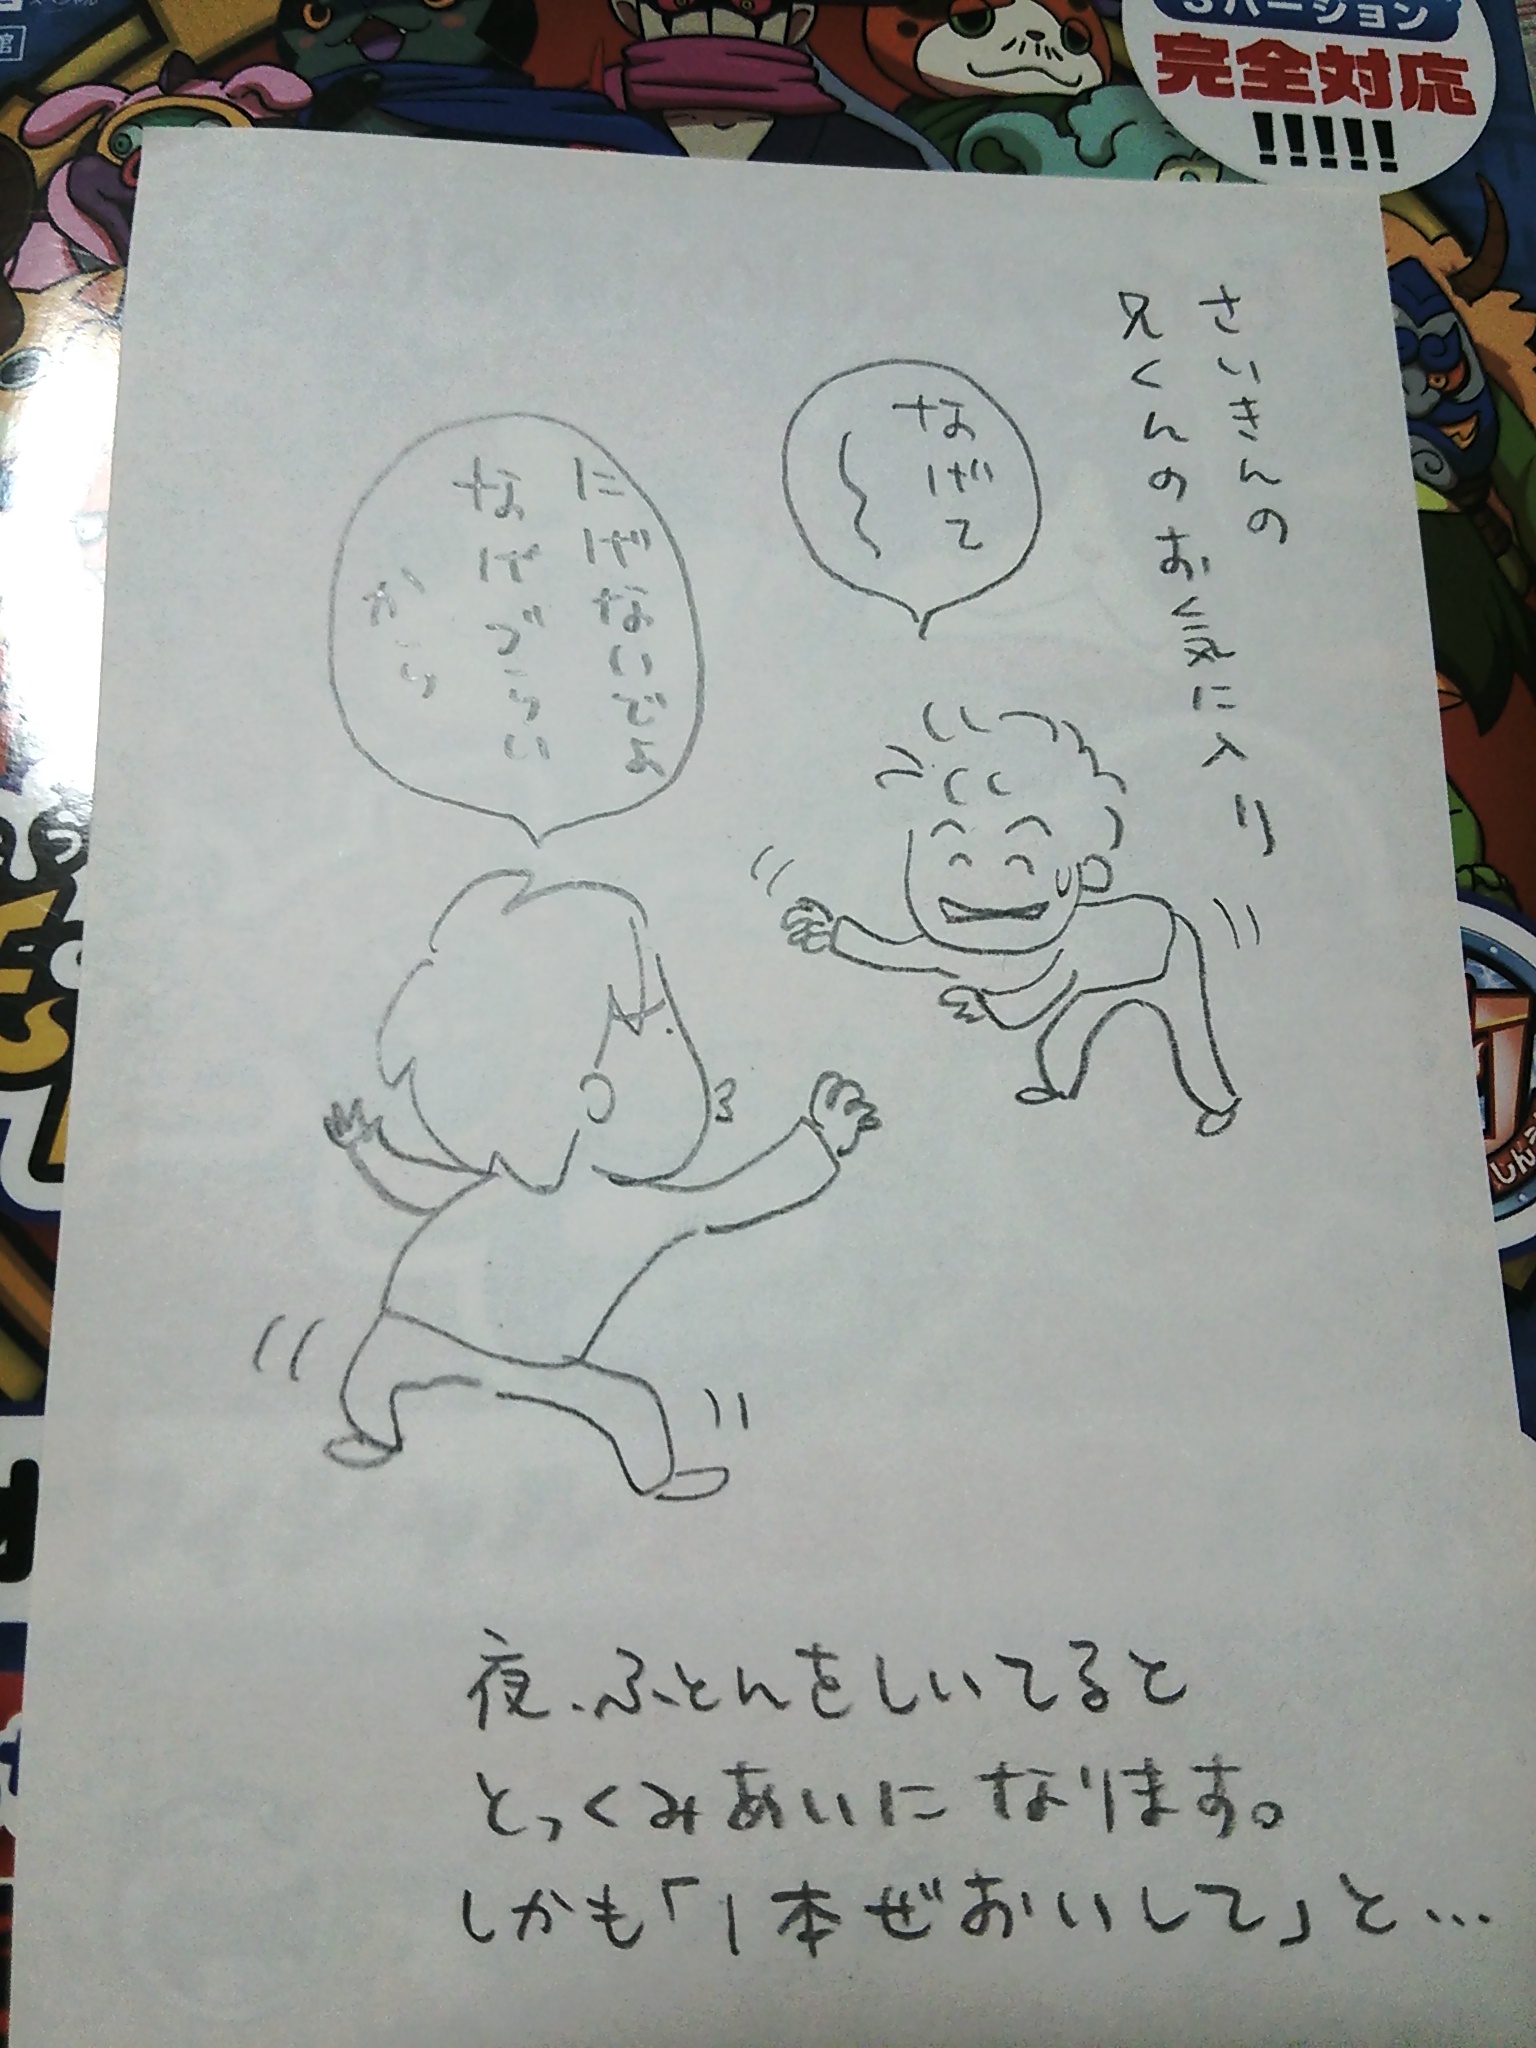 3バージョン
完全対応
!!!!!
さいきんの
兄くんのお気に入り
なげて
〜
にげないでよ
なげづらい
から
夜、ふとんをしいてると
とっくみあいになります。
しかも「1本ぜおいして」と…